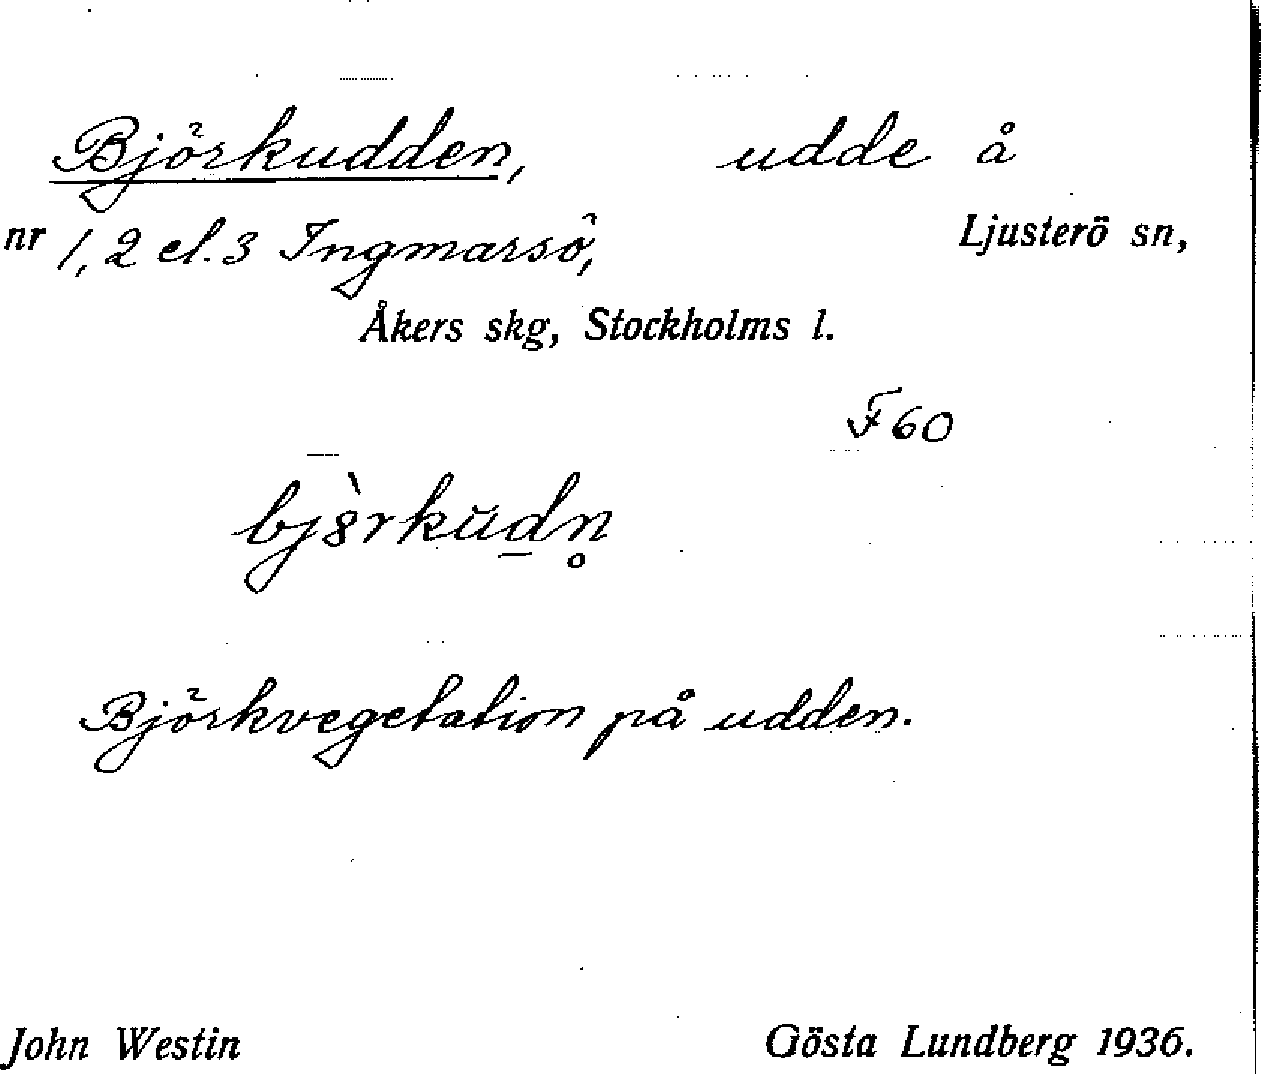 Björkudden, udde å
nr 1, 2 el. 3 Ingmarsö, Ljusterö sn,
Åkers skg, Stockholms l.
F 60
bj8̀rkŭd̲n̥
Björkvegetation på udden.
John Westin Gösta Lundberg 1936.